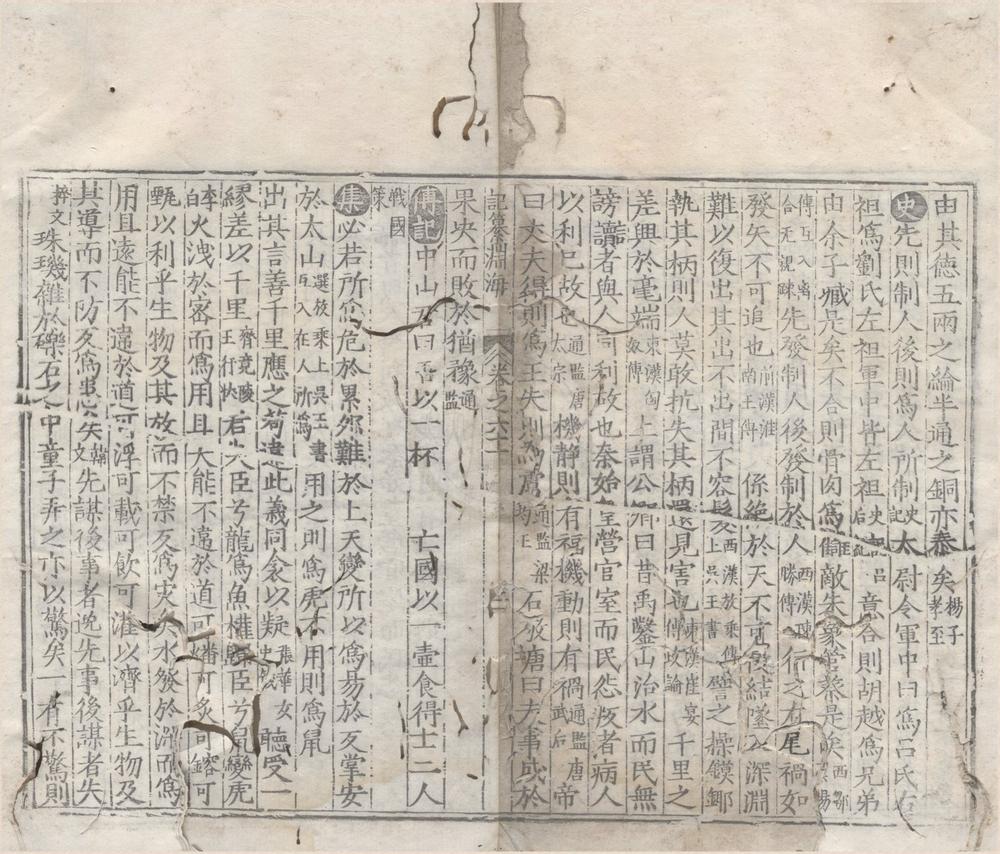 由其德五兩之綸半通之銅亦泰矣楊子孝至
史先則制人後則爲人所制史記太尉令軍中曰爲呂氏右
祖爲劉氏左祖軍中皆左祖史記呂后紀意合則胡越爲兄弟
由余子臧是矣不合則骨肉爲讎敵朱象管蔡是矣西鄒陽
傳互入离合无親疎先發制人後發制於人西漢項勝傳行之有尾禍如
發矢不可追也前漢淮南王傳係絶於天不可復結墜入深淵
難以復出其出不出間不容髮西漢枚乘傳上吳王書譬之操鏌鋣
執其柄則人莫敢抗失其柄還見害也東漢崔寔傳政論千里之
差興於毫端東漢南匈奴傳上謂公卿曰昔禹鑿山治水而民無
謗讟者與人同利故也秦始皇營宮室而民怨叛者病人
以利己故也通監唐太宗機静則有福機動則有禍通監唐武后帝
曰大夫得則爲王失則爲虜通監梁均王石敬塘曰夫事成於
記纂淵海 卷之六十
果決而敗於猶豫通監
傳記中山君曰吾以一杯 亡國以一壷食得士二人
戰國策
集必若所欲危於累卵難於上天變所以爲易於反掌安
於太山選枚乘上吳王書互入在人所爲用之則爲虎不用則爲鼠
出其言善千里應之苟違此義同衾以疑張華女史箴聽受一
繆差以千里齊竟陵王行狀君失臣兮龍爲魚權歸臣兮鼠變虎
李白火洩於密而爲用且大能不遠於道可燔可炙可鎔可
甄以利乎生物及其放而不禁反爲灾矣水發於淵而爲
用且遠能不遠於道可浮可載可飲可灌以濟乎生物及
其導而不防反爲患矣韓文先謀後事者逸先事後謀者失
粹文珠璣雜於礫石之中童子弄之亦以驚矣一有不驚則